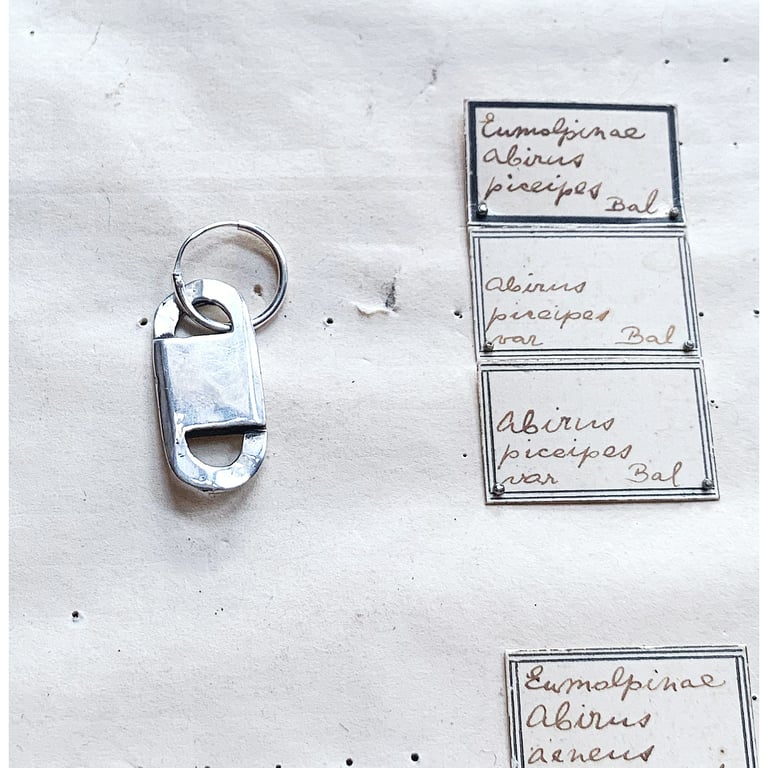 Eumolpinae
Abirus
piceipes
Bal
Abirus
piceipes
var Bal
Abirus
piceipes
var Bal
Eumolpinae
Abirus
aeneus